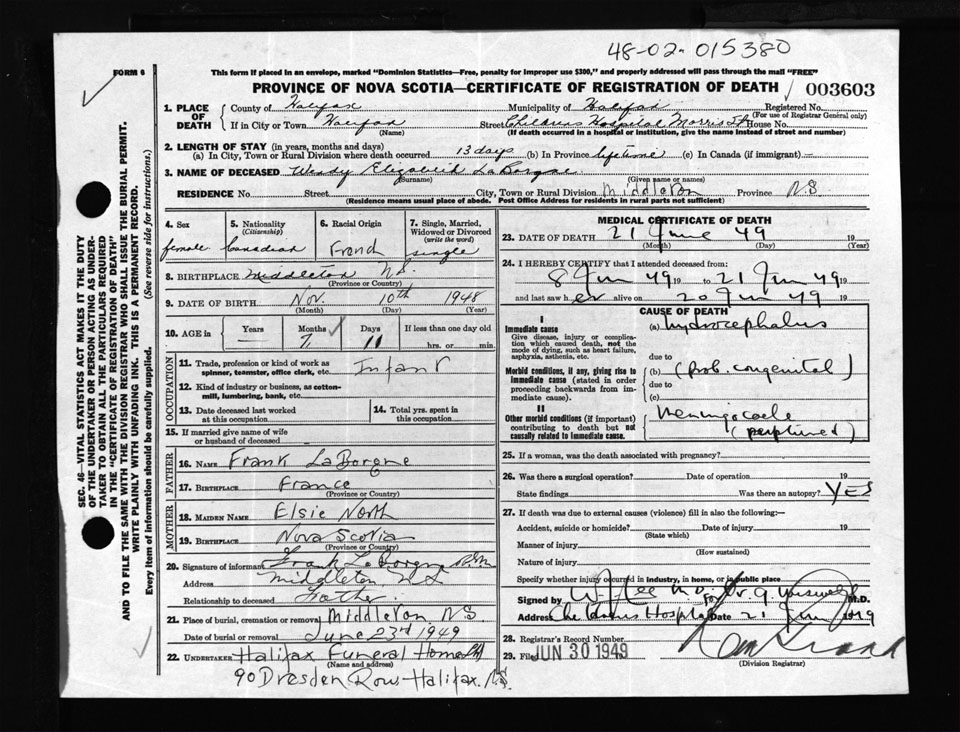 48-02-015380
FORM 6
This form if placed in an envelope, marked "Dominion Statistics—Free, penalty for improper use $300," and properly addressed will pass through the mail "FREE"
PROVINCE OF NOVA SCOTIA—CERTIFICATE OF REGISTRATION OF DEATH 003603
1. PLACE OF DEATH
County of Halifax Municipality of Halifax Registered No.
(For use of Registrar General only)
If in City or Town Halifax Street Childrens Hospital Morris St House No.
(Name) (If death occurred in a hospital or institution, give the name instead of street and number)
2. LENGTH OF STAY (in years, months and days)
(a) In City, Town or Rural Division where death occurred 13 days (b) In Province lifetime (c) In Canada (if immigrant) —
3. NAME OF DECEASED Wendy Elizabeth LaBorgne
(Surname) (Given name or names)
RESIDENCE No. Street City, Town or Rural Division Middleton Province N.S
(Residence means usual place of abode. Post Office Address for residents in rural parts not sufficient)
4. Sex
female
5. Nationality
(Citizenship)
Canadian
6. Racial Origin
French
7. Single, Married, Widowed or Divorced
(write the word)
single
8. BIRTHPLACE Middleton N.S.
(Province or Country)
9. DATE OF BIRTH Nov. 10th 1948
(Month) (Day) (Year)
10. AGE in
Years Months Days If less than one day old
— 7 11 hrs. or min.
OCCUPATION
11. Trade, profession or kind of work as spinner, teamster, office clerk, etc. Infant
12. Kind of industry or business, as cotton-mill, lumbering, bank, etc.
13. Date deceased last worked at this occupation
14. Total yrs. spent in this occupation
15. If married give name of wife or husband of deceased
FATHER
16. NAME Frank LaBorgne
17. BIRTHPLACE France
(Province or Country)
MOTHER
18. MAIDEN NAME Elsie North
19. BIRTHPLACE Nova Scotia
(Province or Country)
20. Signature of informant Frank LaBorgne
Address Middleton N.S
Relationship to deceased Father
21. Place of burial, cremation or removal Middleton NS
Date of burial or removal June 23rd 1949
22. UNDERTAKER Halifax Funeral Home Ltd
(Name and address)
90 Dresden Row - Halifax. NS.
MEDICAL CERTIFICATE OF DEATH
23. DATE OF DEATH 21 June 49 19
(Month) (Day) (Year)
24. I HEREBY CERTIFY that I attended deceased from:
8 Jun 49 19 to 21 Jun 49 19
and last saw her alive on 20 Jun 49 19
CAUSE OF DEATH
I
Immediate cause
Give disease, injury or complication which caused death, not the mode of dying, such as heart failure, asphyxia, asthenia, etc.
(a) hydrocephalus
due to
Morbid conditions, if any, giving rise to immediate cause (stated in order proceeding backwards from immediate cause).
(b) (prob. congenital)
due to
(c)
II
Other morbid conditions (if important) contributing to death but not causally related to immediate cause.
Meningocoele
25. If a woman, was the death associated with pregnancy?
26. Was there a surgical operation? Date of operation 19
State findings Was there an autopsy? YES
27. If death was due to external causes (violence) fill in also the following:—
Accident, suicide or homicide? Date of injury 19
(State which)
Manner of injury
(How sustained)
Nature of injury
Specify whether injury occurred in industry, in home, or in public place
Signed by W. Lee M.D. for Dr. G. M.D.
Address Childrens Hospital Date 21 Jun 1949
28. Registrar's Record Number
29. Filed JUN 30 1949
(Division Registrar)
SEC. 46—VITAL STATISTICS ACT MAKES IT THE DUTY
OF THE UNDERTAKER OR PERSON ACTING AS UNDER-
TAKER TO OBTAIN ALL THE PARTICULARS REQUIRED
IN THE "CERTIFICATE OF REGISTRATION OF DEATH"
AND TO FILE THE SAME WITH THE DIVISION REGISTRAR WHO SHALL ISSUE THE BURIAL PERMIT.
WRITE PLAINLY WITH UNFADING INK. THIS IS A PERMANENT RECORD.
Every item of information should be carefully supplied. (See reverse side for instructions.)